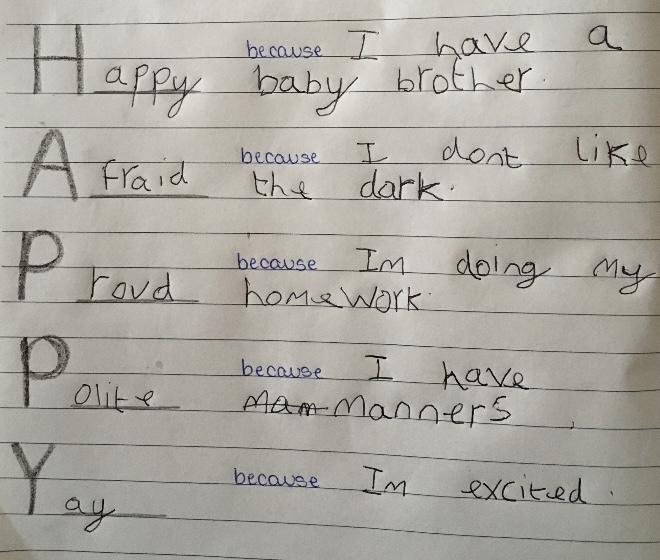 Happy because I have a
baby brother.
Afraid because I dont like
the dark.
Proud because Im doing my
homework.
Polite because I have
mam manners.
Yay because Im excited.